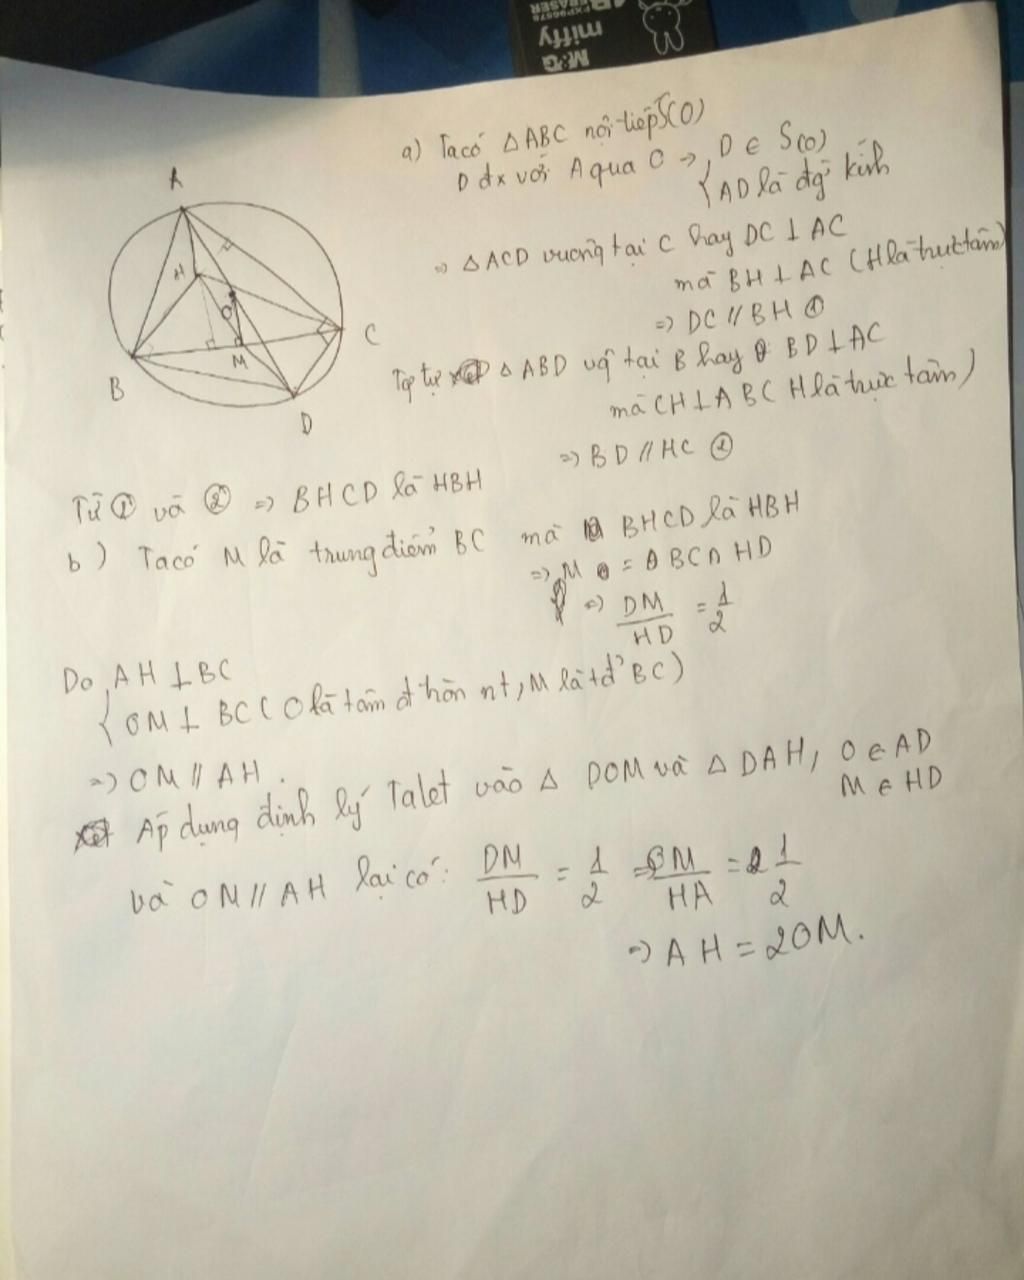 miffy
M&G
a) Ta có △ABC nội tiếp S(O)
D đx với A qua O → D ∈ S(O)
{ AD là đg kính
⇒ △ACD vuông tại C hay DC ⊥ AC
mà BH ⊥ AC (H là trực tâm)
⇒ DC // BH ①
Tg tự △ABD vg tại B hay BD ⊥ AC
mà CH ⊥ AB (H là trực tâm)
⇒ BD // HC ②
Từ ① và ② ⇒ BHCD là HBH
b) Ta có M là trung điểm BC mà BHCD là HBH
⇒ M = BC ∩ HD
⇒ DM/HD = 1/2
Do { AH ⊥ BC
OM ⊥ BC (O là tâm đ tròn nt, M là tđ BC)
⇒ OM // AH.
Áp dụng định lý Talet vào △ DOM và △ DAH, O ∈ AD
M ∈ HD
và OM // AH lại có: DM/HD = 1/2 ⇒ OM/HA = 1/2
⇒ AH = 2OM.
A
H
O
C
M
B
D